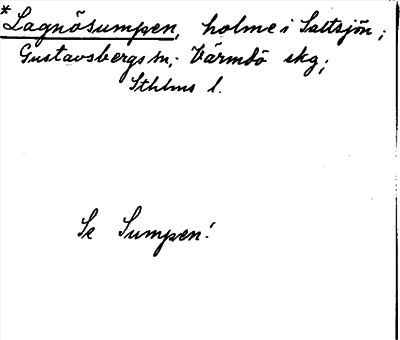 * Lagnösumpen, holme i Saltsjön;
Gustavsbergs sn; Värmdö skg;
Sthlms l.
Se Sumpen!